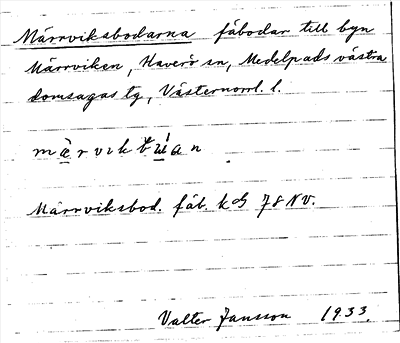 Märrviksbodarna fäbodar till byn
Märrviken, Haverö sn, Medelpads västra
domsagas tg, Västernorrl. l.
märvik
Märrviksbod. fäb. kbl 78 NV.
Valter Jansson 1933.